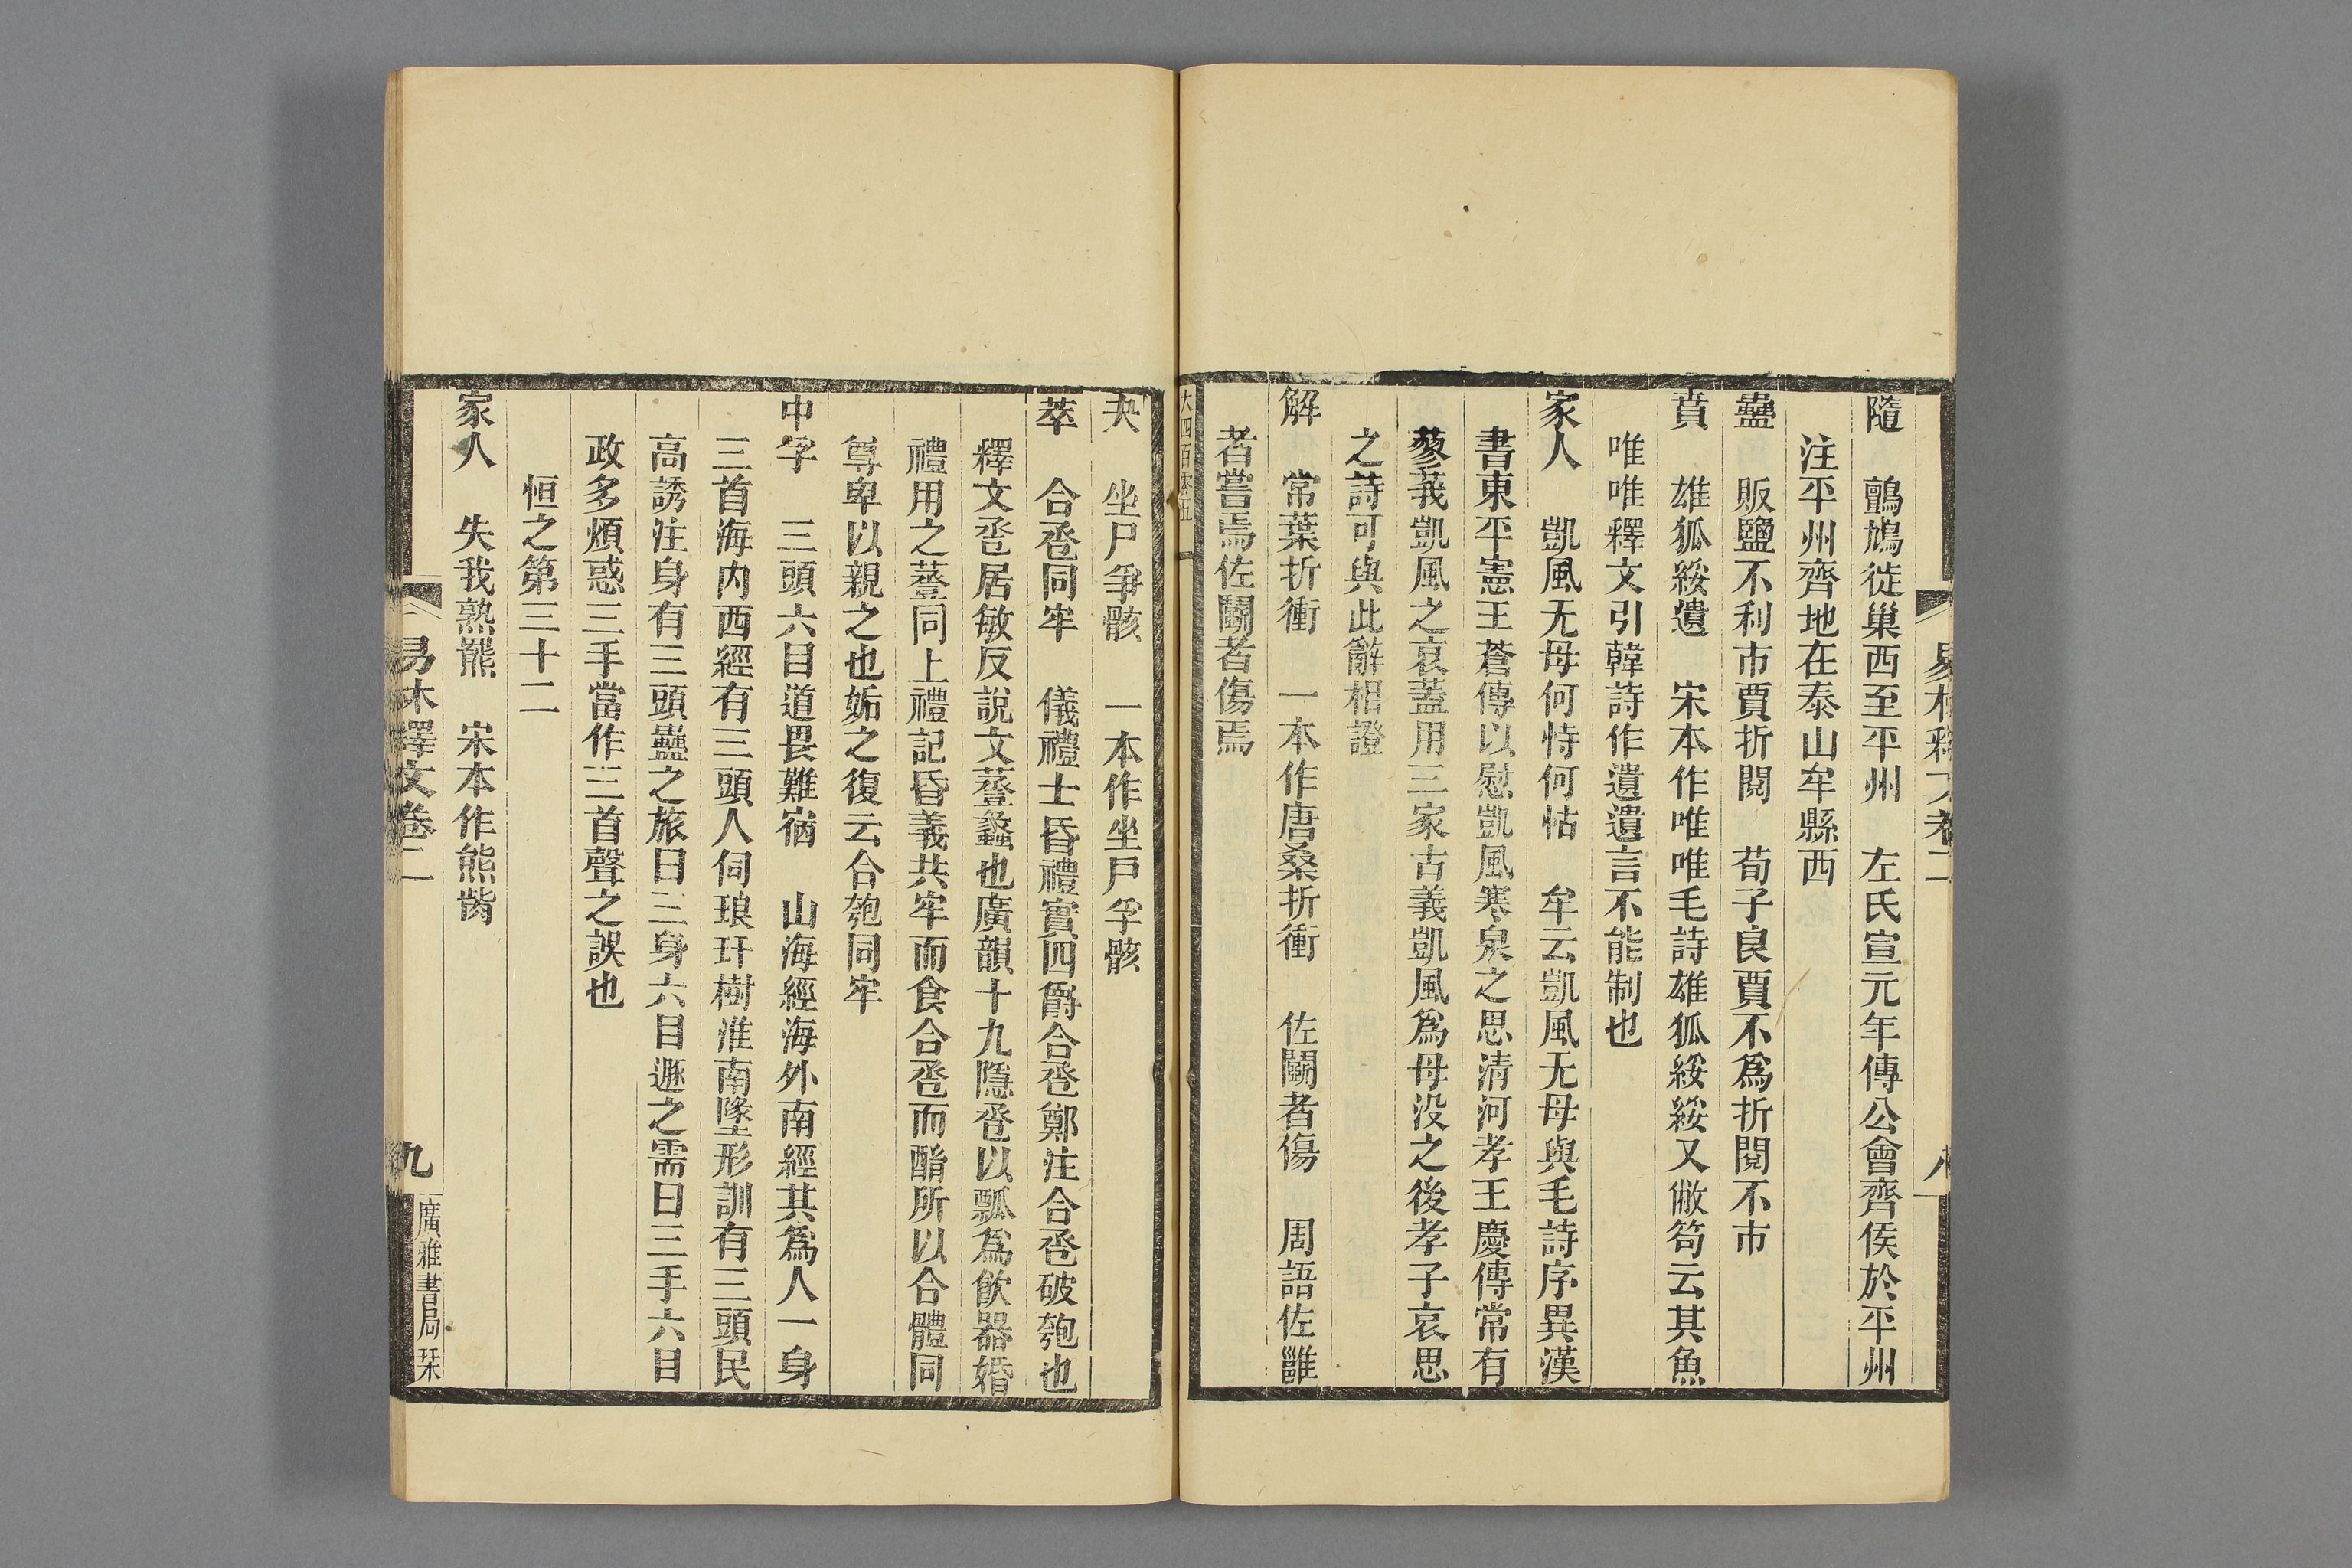 易林釋文卷二 八
隨 鸇鳩徙巢西至平州 左氏宣元年傳公會齊侯於平州
注平州齊地在泰山牟縣西
蠱 販鹽不利市賈折閱 荀子良賈不爲折閱不市
賁 雄狐綏遺 宋本作唯唯毛詩雄狐綏綏又敝笱云其魚
唯唯釋文引韓詩作遺遺言不能制也
家人 凱風无母何恃何怙 牟云凱風无母與毛詩序異漢
書東平憲王蒼傳以慰凱風寒泉之思清河孝王慶傳常有
蓼莪凱風之哀蓋用三家古義凱風爲母没之後孝子哀思
之詩可與此辭相證
解 常葉折衝 一本作唐桑折衝 佐鬭者傷 周語佐雝
者嘗焉佐鬭者傷焉
大四百零五
夬 坐尸爭骸 一本作坐戸孚骸
萃 合卺同牢 儀禮士昏禮實四爵合卺鄭注合卺破匏也
釋文卺居敏反說文䔲蠡也廣韻十九隱卺以瓢爲飮器婚
禮用之䔲同上禮記昏義共牢而食合卺而酳所以合體同
尊卑以親之也姤之復云合匏同牢
中孚 三頭六目道畏難宿 山海經海外南經其爲人一身
三首海内西經有三頭人伺琅玕樹淮南墬形訓有三頭民
高誘注身有三頭蠱之旅曰三身六目遯之需曰三手六目
政多煩惑三手當作三首聲之誤也
恒之第三十二
家人 失我熟羆 宋本作熊崤
易林釋文卷二 九 廣雅書局栞